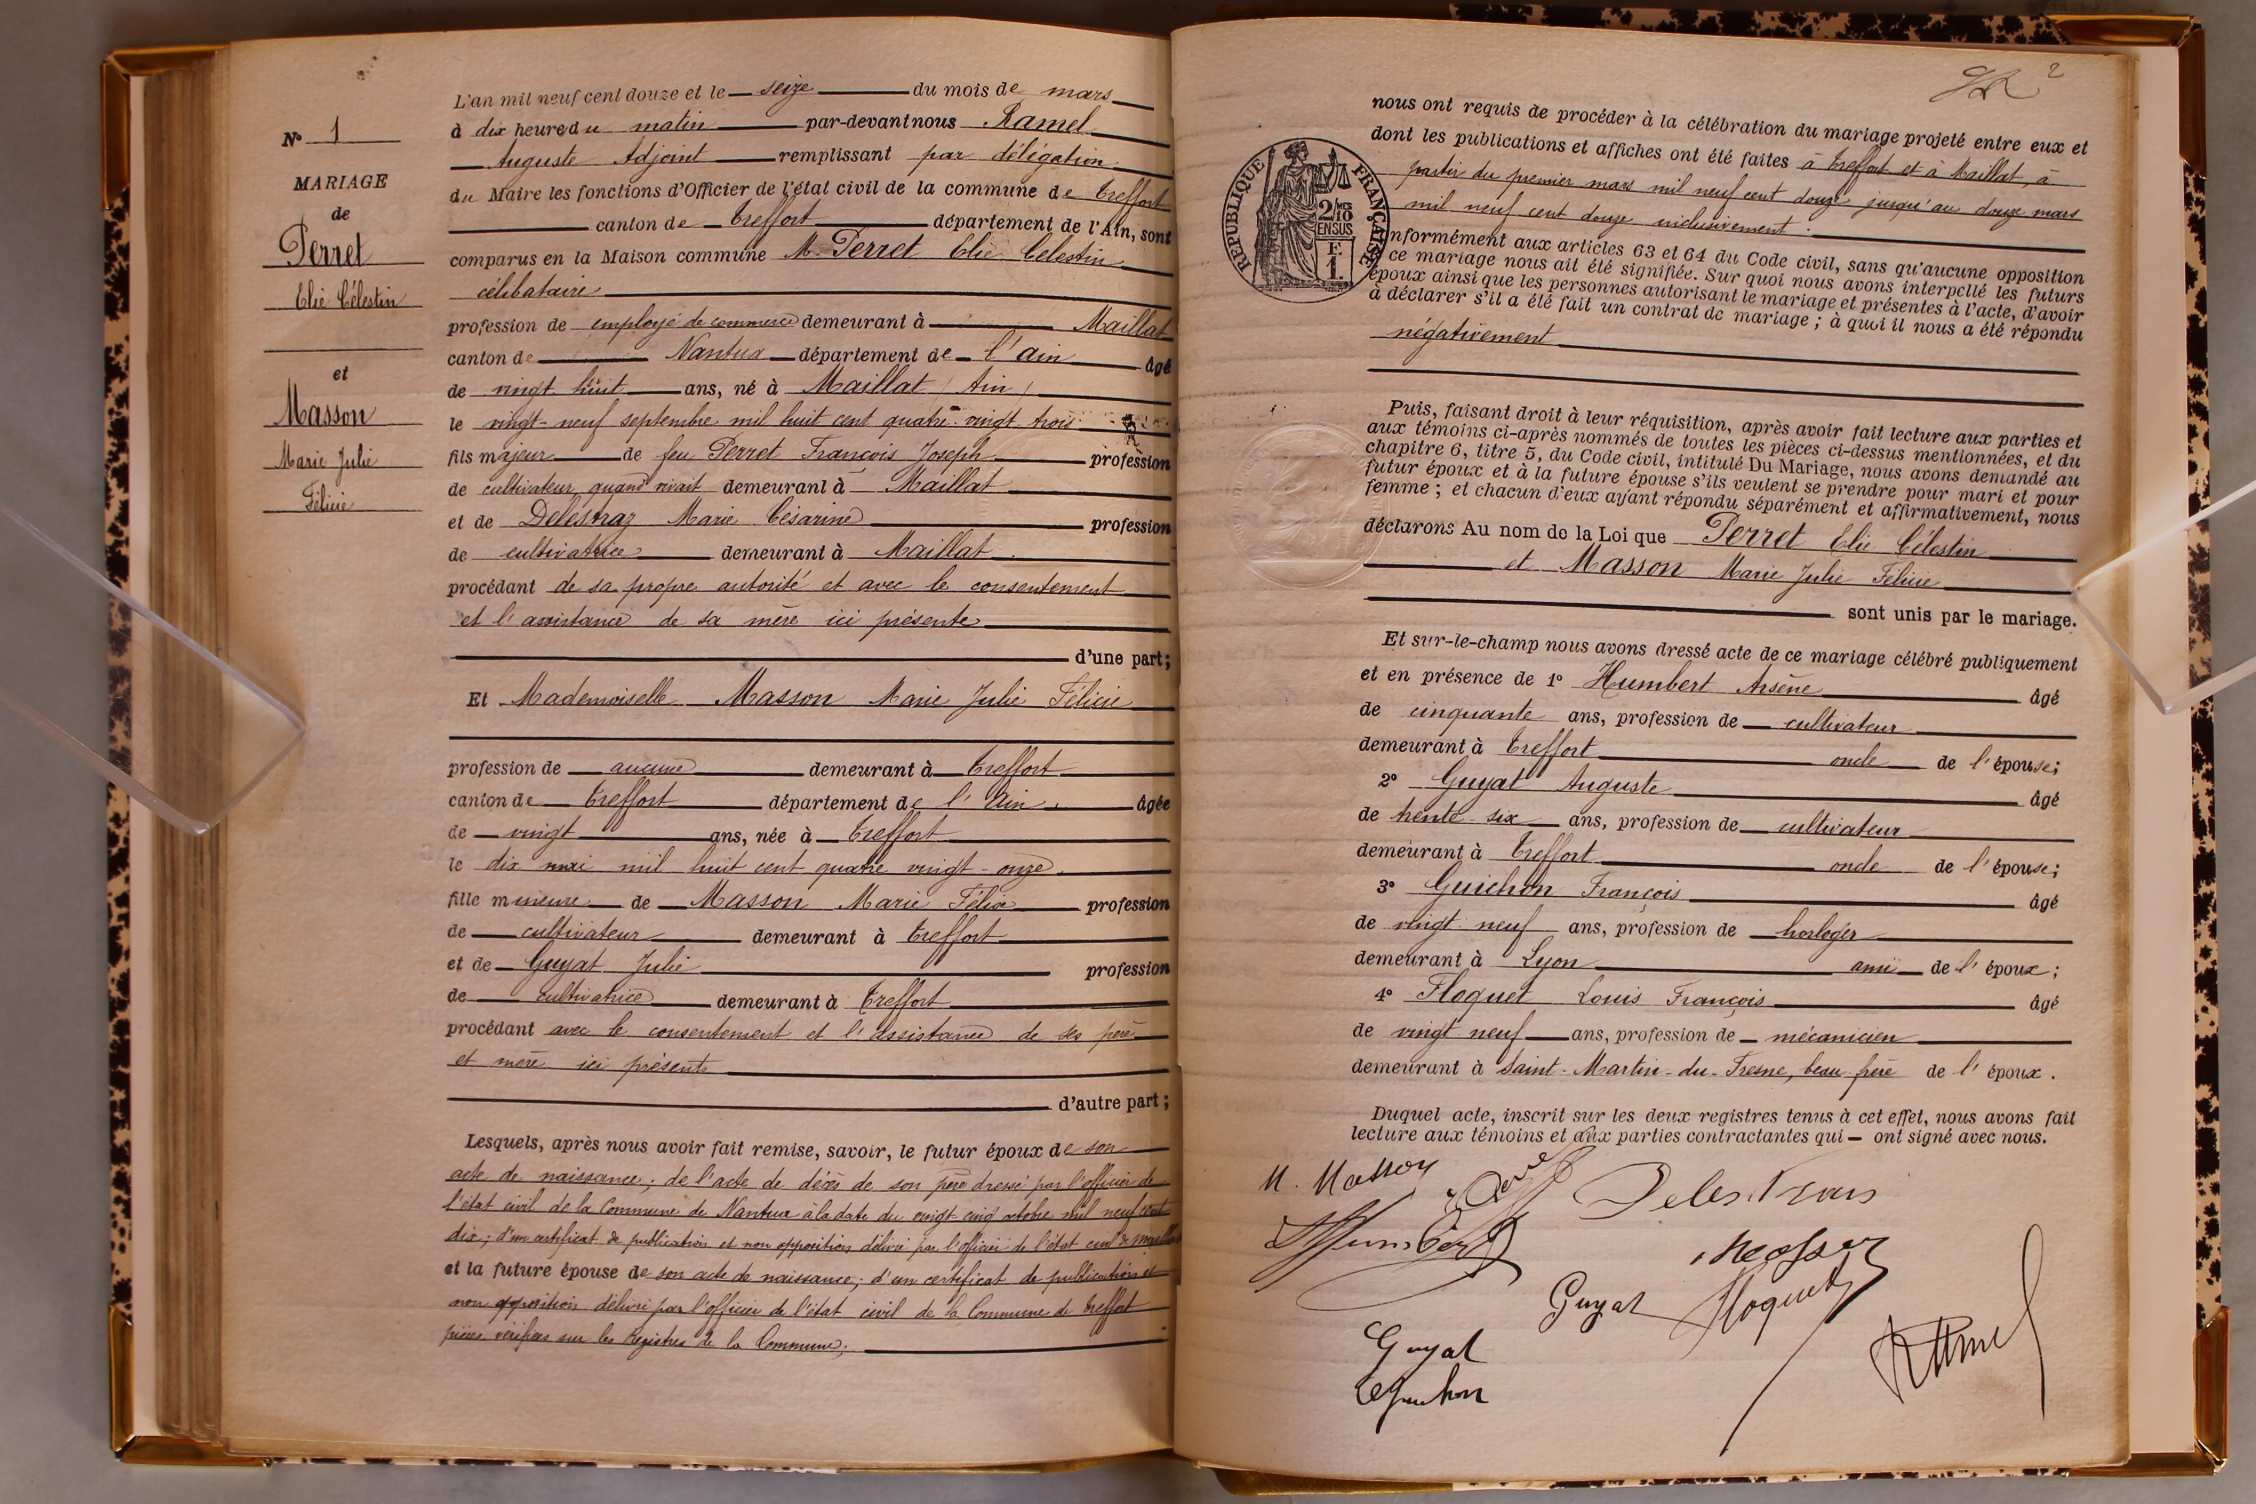 N° 1
MARIAGE
de
Perret
Elie Célestin
et
Masson
Marie Julie
Félicie
L'an mil neuf cent douze et le seize du mois de mars
à dix heure du matin par-devant nous Ramel
Auguste Adjoint remplissant par délégation
du Maire les fonctions d'Officier de l'état civil de la commune de Treffort
canton de Treffort département de l'Ain, sont
comparus en la Maison commune M. Perret Elie Célestin
célibataire
profession de employé de commerce demeurant à Maillat
canton de Nantua département de l'ain âgé
de vingt huit ans, né à Maillat (Ain)
le vingt-neuf septembre mil huit cent quatre-vingt trois
fils majeur de feu Perret François Joseph profession
de cultivateur quand vivait demeurant à Maillat
et de Marie Césarine profession
de cultivatrice demeurant à Maillat
procédant de sa propre autorité et avec le consentement
et l'assistance de sa mère ici présente
d'une part;
Et Mademoiselle Masson Marie Julie Félicie
profession de aucune demeurant à Treffort
canton de Treffort département de l'Ain. âgée
de vingt ans, née à Treffort
le dix mai mil huit cent quatre vingt-onze.
fille mineure de Masson Marie Félix profession
de cultivateur demeurant à Treffort
et de Guyat Julie profession
de cultivatrice demeurant à Treffort
procédant avec le consentement et l'assistance de ses père
et mère ici présents
d'autre part;
Lesquels, après nous avoir fait remise, savoir, le futur époux de son
acte de naissance; de l'acte de décès de son père dressé par l'officier de
l'état civil de la Commune de Nantua à la date du vingt-cinq octobre mil neuf cent
dix; d'un certificat de publication et non opposition délivré par l'officier de l'état civil de Maillat
et la future épouse de son acte de naissance; d'un certificat de publication et
non opposition délivré par l'officier de l'état civil de la Commune de Treffort
pièces vérifiées sur les registres de la Commune;
2
nous ont requis de procéder à la célébration du mariage projeté entre eux et
dont les publications et affiches ont été faites à Treffort et à Maillat, à
partir du premier mars mil neuf cent douze jusqu'au douze mars
mil neuf cent douze inclusivement.
RÉPUBLIQUE FRANÇAISE
2/10
EN SUS
F
1
nformément aux articles 63 et 64 du Code civil, sans qu'aucune opposition
ce mariage nous ait été signifiée. Sur quoi nous avons interpellé les futurs
époux ainsi que les personnes autorisant le mariage et présentes à l'acte, d'avoir
à déclarer s'il a été fait un contrat de mariage; à quoi il nous a été répondu
négativement
Puis, faisant droit à leur réquisition, après avoir fait lecture aux parties et
aux témoins ci-après nommés de toutes les pièces ci-dessus mentionnées, et du
chapitre 6, titre 5, du Code civil, intitulé Du Mariage, nous avons demandé au
futur époux et à la future épouse s'ils veulent se prendre pour mari et pour
femme; et chacun d'eux ayant répondu séparément et affirmativement, nous
déclarons Au nom de la Loi que Perret Elie Célestin
et Masson Marie Julie Félicie
sont unis par le mariage.
Et sur-le-champ nous avons dressé acte de ce mariage célébré publiquement
et en présence de 1° Humbert Arsène âgé
de cinquante ans, profession de cultivateur
demeurant à Treffort oncle de l'épouse;
2° Guyat Auguste âgé
de trente-six ans, profession de cultivateur
demeurant à Treffort oncle de l'épouse;
3° Guichon François âgé
de vingt neuf ans, profession de horloger
demeurant à Lyon ami de l'époux;
4° Floquet Louis François âgé
de vingt neuf ans, profession de mécanicien
demeurant à Saint-Martin-du-Fresne, beau-frère de l'époux.
Duquel acte, inscrit sur les deux registres tenus à cet effet, nous avons fait
lecture aux témoins et aux parties contractantes qui ont signé avec nous.
M. Masson
Humbert
Masson
Guyat Floquet
Guyat
Guichon
Ramel